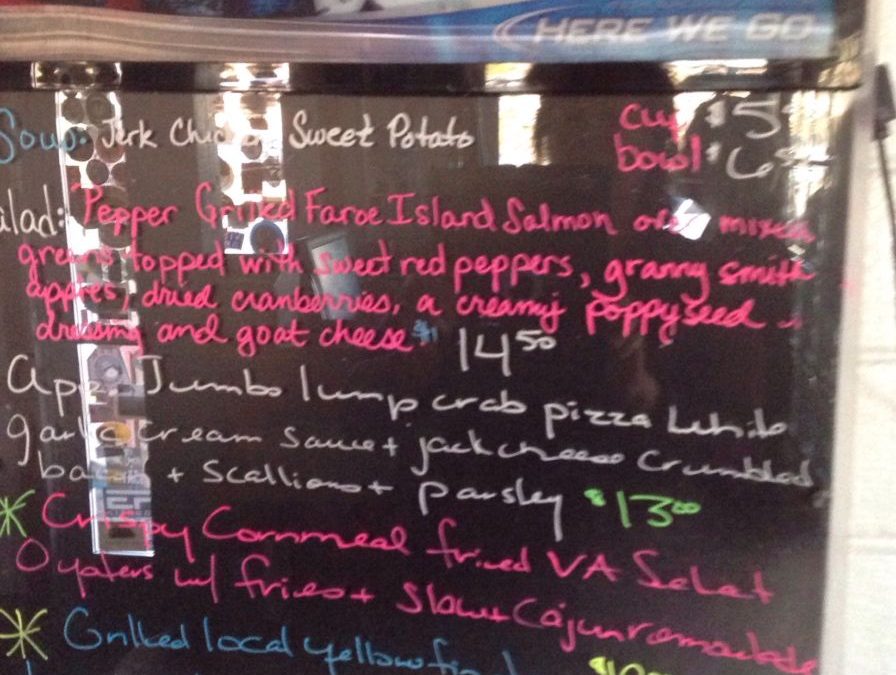 HERE WE GO
Soup: Jerk Chicken Sweet Potato
cup $5
bowl $6
alad: Pepper Grilled Faroe Island Salmon over mixed
greens topped with sweet red peppers, granny smith
apples, dried cranberries, a creamy poppyseed
dressing and goat cheese $14.50
App. Jumbo lump crab pizza white
garlic cream sauce + jack cheese crumbled
bacon + scallions + parsley $13.00
* Crispy Cornmeal fried VA Select
Oysters w/ fries + slaw + Cajun remoulade
* Grilled local yellowfin